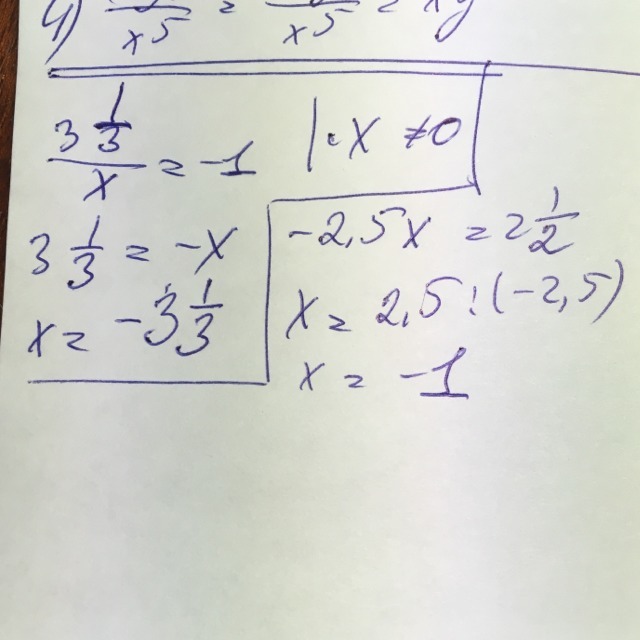 4) / x⁵ = / x⁵ = xy
3 1/3 / x = -1 | · x ≠ 0
3 1/3 = -x
x = -3 1/3
-2,5x = 2 1/2
x = 2,5 : (-2,5)
x = -1